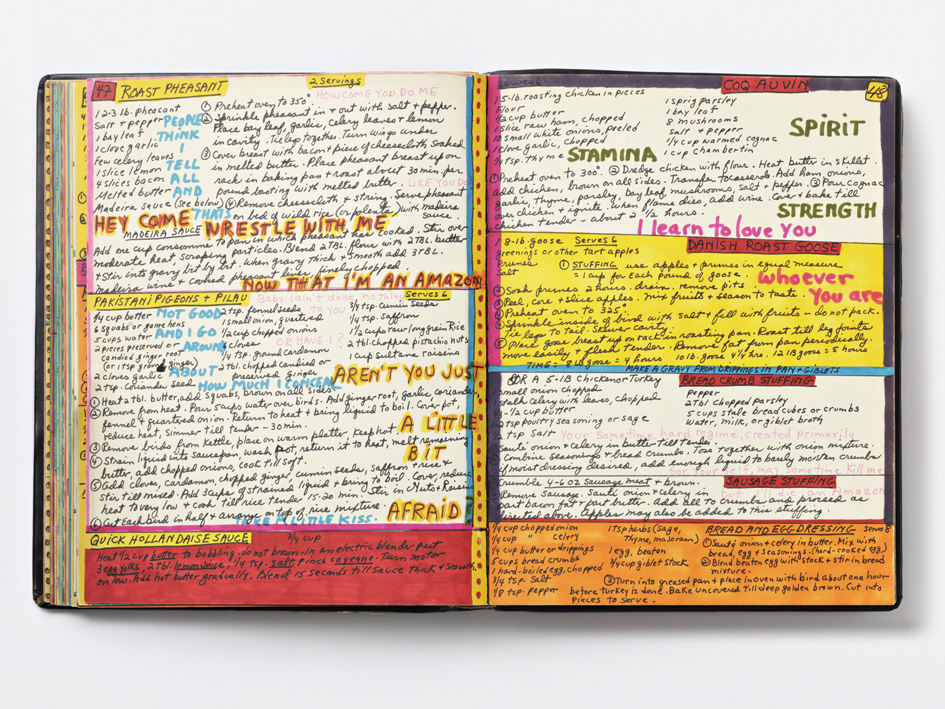 47 ROAST PHEASANT
2 Servings
HOW COME YOU DO ME
1 2-3 lb. pheasant
Salt + pepper
1 bay leaf
1 clove garlic
few celery leaves
1 slice lemon
4 slices bacon
Melted butter
Madeira Sauce (see below)
PEOPLE
THINK
I
TELL
ALL
AND
THATS
① Preheat oven to 350°
② Sprinkle pheasant in + out with salt + pepper.
Place bay leaf, garlic, celery leaves + lemon
in cavity. Tie legs together. Turn wings under
③ Cover breast with bacon + piece of cheesecloth soaked
in melted butter. Place pheasant breast up on
rack in baking pan + roast about 30 min. per
pound basting with melted butter.
LIKE YOU DO
④ Remove cheesecloth + string. Serve pheasant
on bed of wild rice (or polenta) with madeira
sauce.
HEY COME WRESTLE WITH ME
MADEIRA SAUCE
Add one cup consomme to pan in which pheasant has cooked. Stir over
moderate heat, scraping particles. Blend 2 TBL. flour with 2 TBL. butter
+ stir into gravy bit by bit. When gravy thick + smooth add 3 TBL.
madeira wine + cooked pheasant liver, finely chopped
NOW THAT I'M AN AMAZON
PAKISTANI PIGEONS + PILAU
Baby I ain't done nothing
Serves 6
1/4 cup butter
6 squabs or game hens
5 cups water
2 pieces preserved or
candied ginger root
(or 1 tsp grd ginger)
2 cloves garlic
2 tsp. coriander seed
NOT GOOD
AND I GO
AROUND
ABOUT
HOW MUCH I CONCEAL
2 tsp. fennel seeds
1 small onion, quartered
1/2 cup chopped onions
cloves
1/4 tsp. ground cardamon
2 tbl. chopped candied or
preserved ginger
OR HAVE I?
3/4 tsp. cumin seeds
1/4 tsp. saffron
1 1/2 cups raw long grain Rice
2 tbl chopped pistachio nuts
1 cup sultana raisins
AREN'T YOU JUST
A LITTLE
BIT
AFRAID?
① Heat 2 tbl. butter, add squabs, brown on all sides. Add ginger root, garlic, coriander,
fennel + quartered onion. Pour 5 cups water over birds. Cover pot,
② Remove from heat. Return to heat + bring liquid to boil.
reduce heat, simmer till tender - 30 min.
③ Remove birds from kettle, place on warm platter, keep hot
④ Strain liquid into saucepan, wash pot, return it to heat, melt remaining
butter, add chopped onions, cook till soft.
⑤ Add cloves, cardamon, chopped ginger, cumin seeds, saffron + rice +
stir till mixed. Add 3 cups of strained liquid + bring to boil. Cover, reduce
heat to very low + cook till rice tender 15-20 min. Stir in Nuts + Raisins
⑥ Cut each bird in half + arrange on top of rice mixture
TAKE A LITTLE KISS.
QUICK HOLLANDAISE SAUCE
3/4 cup
Heat 1/2 cup butter to bubbling - do not brown. In an electric blender put
3 egg yolks, 2 tbl. lemon juice, 1/4 tsp. salt, pinch cayenne. Turn motor
on low. Add hot butter gradually. Blend 15 seconds till sauce thick + smooth
COQ AU VIN
48
1 5-lb. roasting chicken in pieces
Flour
1/2 cup butter
1 slice raw ham, chopped
10 small white onions, peeled
1 clove garlic, chopped
1/4 tsp. thyme
1 sprig parsley
1 bay leaf
8 mushrooms
salt + pepper
1/4 cup warmed cognac
1 cup Chambertin
SPIRIT
STAMINA
STRENGTH
① Preheat oven to 300° ② Dredge chicken with flour. Heat butter in skillet.
add chicken, brown on all sides. Transfer to casserole. Add ham, onions,
garlic, thyme, parsley, bay leaf, mushrooms, salt + pepper. ③ Pour cognac
over chicken + ignite. When flame dies, add wine. Cover + bake till
chicken tender - about 2 1/2 hours.
I learn to love you
1 8-lb. goose Serves 6
greenings or other tart apples
Prunes
Salt
DANISH ROAST GOOSE
① STUFFING use apples + prunes in equal measure
= 1 cup for each pound of goose.
whoever
you are
② Soak prunes 2 hours. drain. remove pits
③ Peel, core + slice apples. mix fruits + season to taste.
④ Preheat oven to 325°
⑤ Sprinkle inside of bird with salt + fill with fruits - do not pack.
Tie legs to tail. Skewer cavity.
⑥ Place goose breast up on rack in roasting pan. Roast till leg joints
move easily + flesh tender. Remove fat from pan periodically
TIME = 8 lb goose = 4 hours 10 lb. goose 4 1/2 hrs. 12 lb goose = 5 hours
MAKE A GRAVY FROM DRIPPINGS IN PAN + GIBLETS
FOR A 5-lb Chicken or Turkey
BREAD CRUMB STUFFING
small onion chopped
stalk celery with leaves, chopped
1/2 cup butter
1/2 tsp poultry seasoning or sage
1/2 tsp salt
pepper
2 tbl chopped parsley
5 cups stale bread cubes or crumbs
water, milk, or giblet broth
Your sometime hard regime, created primarily
Sauté onion + celery in butter till tender
② Combine seasonings + bread crumbs. Toss together with onion mixture.
If moist dressing desired, add enough liquid to barely moisten crumbs
for your self, may sometime kill me
Crumble 4-6 oz sausage meat + brown.
SAUSAGE STUFFING
Remove sausage. Sauté onion + celery in
but I'll die an Amazon
part bacon fat + part butter. Return sausage to crumbs and proceed as
directed above. Apples may also be added to this stuffing.
1/4 cup chopped onion
1/4 cup " celery
1/4 cup butter or drippings
5 cups bread crumbs
1 hard-boiled egg, chopped
3/4 tsp. salt
1/8 tsp. pepper
1 tsp herbs (sage,
thyme, marjoram)
1 egg, beaten
3/4 cup giblet stock
BREAD AND EGG DRESSING
① Sauté onion + celery in butter. Mix with
bread, egg + seasonings. (hard-cooked egg)
② Blend beaten egg with stock + stir in bread
mixture.
③ Turn into greased pan + place in oven with bird about one hour
before turkey is done. Bake uncovered till deep golden brown. Cut into
pieces to serve.